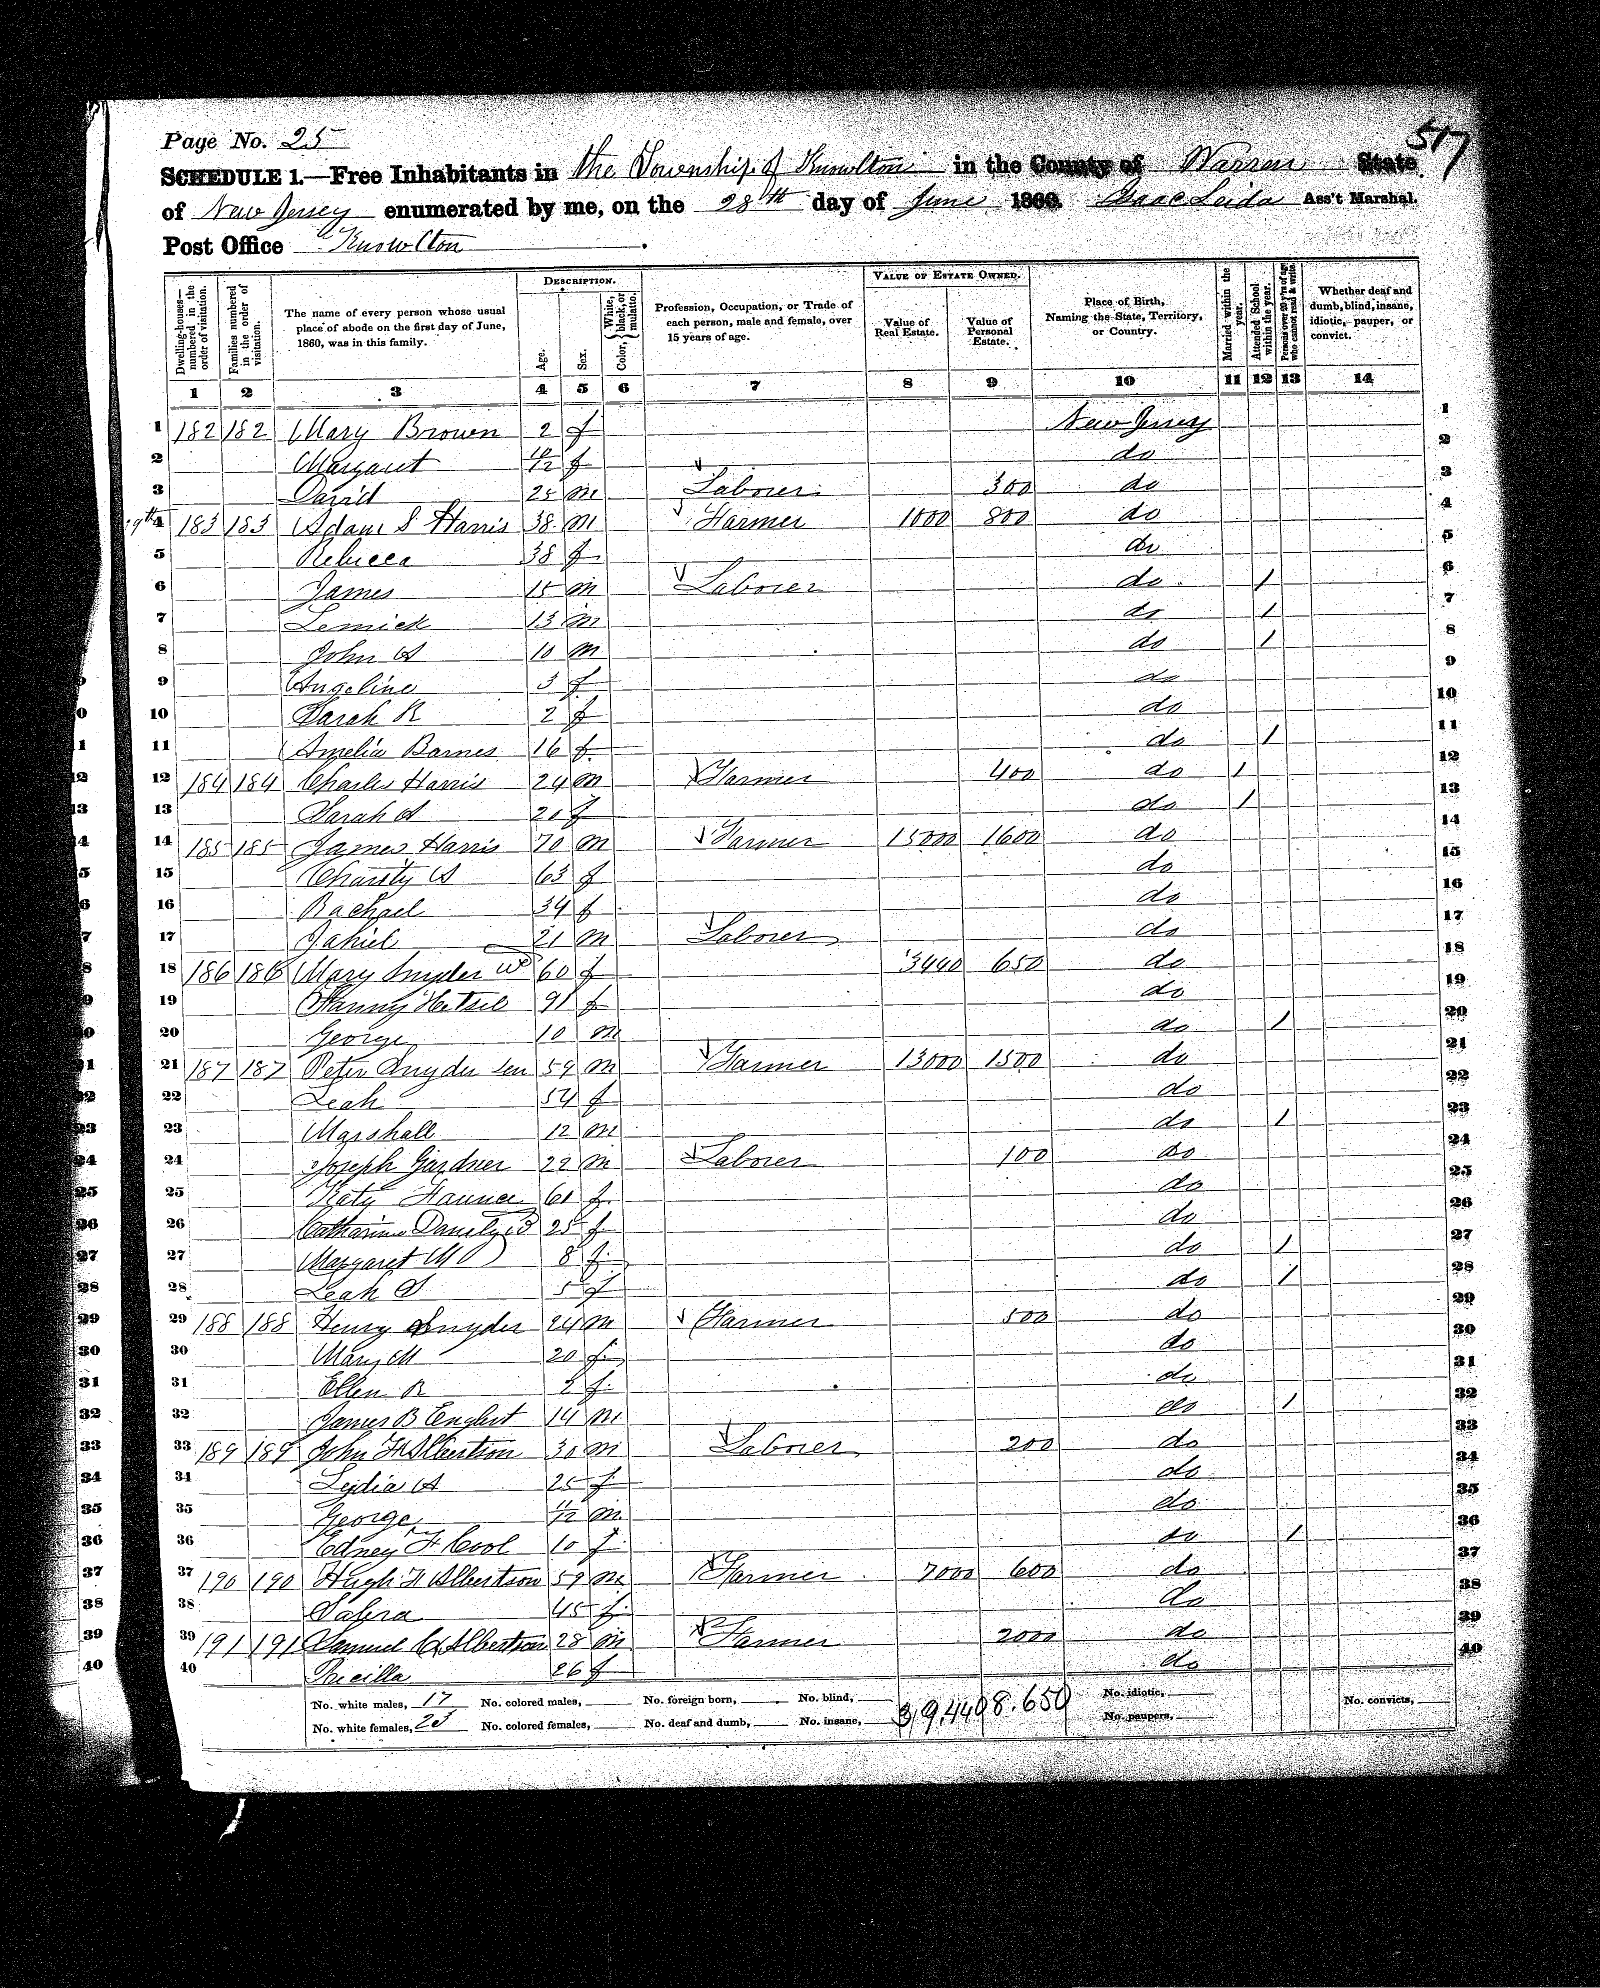 Page No. 25
517
SCHEDULE 1.—Free Inhabitants in the Township of Knowlton in the County of Warren State
of New Jersey enumerated by me, on the 28th day of June 1860. Isaac Leida Ass't Marshal.
Post Office Knowlton
Dwelling-houses—numbered in the order of visitation.
Families numbered in the order of visitation.
The name of every person whose usual place of abode on the first day of June, 1860, was in this family.
DESCRIPTION.
Age.
Sex.
Color, White, black, or mulatto.
Profession, Occupation, or Trade of each person, male and female, over 15 years of age.
VALUE OF ESTATE OWNED.
Value of Real Estate.
Value of Personal Estate.
Place of Birth, Naming the State, Territory, or Country.
Married within the year.
Attended School within the year.
Persons over 20 y'rs of age who cannot read & write.
Whether deaf and dumb, blind, insane, idiotic, pauper, or convict.
1 2 3 4 5 6 7 8 9 10 11 12 13 14
1 182 182 Mary Brown 2 f New Jersey 1
2 Margaret 10/12 f do 2
3 David 25 m Laborer 300 do 3
4 183 183 Adam S Harris 38 m Farmer 1000 800 do 4
5 Rebecca 38 f do 5
6 James 15 m Laborer do / 6
7 Lemick 13 m do / 7
8 John A 10 m do / 8
9 Angeline 3 f do 9
10 Sarah R 2 f do 10
11 Amelia Barnes 16 f do / 11
12 184 184 Charles Harris 24 m Farmer 400 do / 12
13 Sarah A 20 f do / 13
14 185 185 James Harris 70 m Farmer 15000 1600 do 14
15 Charity A 63 f do 15
16 Rachael 34 f do 16
17 Jahiel 21 m Laborer do 17
18 186 186 Mary Snyder W 60 f 3440 650 do 18
19 Fanny 91 f do 19
20 George 10 m do / 20
21 187 187 Peter Snyder Sen 59 m Farmer 13000 1500 do 21
22 Leah 54 f do 22
23 Marshall 12 m do / 23
24 Joseph Gardner 22 m Laborer 100 do 24
25 Katy 61 f do 25
26 Catharine 25 f do 26
27 Margaret M 8 f do / 27
28 Leah S 5 f do / 28
29 188 188 Henry Snyder 24 m Farmer 500 do 29
30 Mary M 20 f do 30
31 Ellen R 2 f do 31
32 James B Englert 14 m do / 32
33 189 189 John H Albertson 30 m Laborer 200 do 33
34 Lydia A 25 f do 34
35 George 11/12 m do 35
36 Edney F Cool 10 f do / 36
37 190 190 Hugh H Albertson 59 m Farmer 7000 600 do 37
38 Safira 45 f do 38
39 191 191 Samuel C Albertson 28 m Farmer 2000 do 39
40 Precilla 26 f do 40
No. white males, 17 No. colored males, No. foreign born, No. blind, 39,440 8.650 No. idiotic, No. convicts,
No. white females, 23 No. colored females, No. deaf and dumb, No. insane, No. paupers,